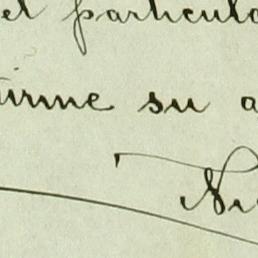 el particula
irme su a
Ni